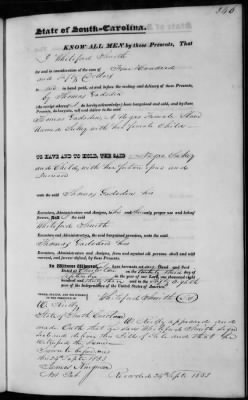 346
State of South-Carolina.
KNOW ALL MEN by these Presents, That
I Whiteford Smith
for and in consideration of the sum of Four Hundred
and Fifty Dollars
to me in hand paid, at and before the sealing and delivery of these Presents,
by Thomas Gadsden
(the receipt whereof I do hereby acknowledge) have bargained and sold, and by these
Presents, do bargain, sell and deliver to the said
Thomas Gadsden, A Negro Female Slave
named Sukey with her female Child
TO HAVE AND TO HOLD, THE SAID Negro Sukey
and Child, with her future issue and
Increase
unto the said Thomas Gadsden his
Executors, Administrators and Assigns, to his and their only proper use and behoof,
forever. And I the said
Whiteford Smith my
Executors and Administrators, the said bargained premises, unto the said
Thomas Gadsden his
Executors, Administrators and Assigns, from and against all persons, shall and will
warrant, and forever defend, by these Presents.
In Witness Whereof, I have hereunto set my Hand and Seal
Dated at Charleston on the day of
September in the year of our Lord, one thousand eight
hundred and thirty three and in the
year of the Independence of the United States of America.
SIGNED, SEALED, AND DELIVERED
IN THE PRESENCE OF
Whiteford Smith
W. Reilly
State of South Carolina
W. Reilly appeared and
made Oath that he saw Whiteford Smith sign
seal and deliver this Bill of Sale and that he
witnessed the same
Sworn to before me
24th Sept 1833
James Kingman
Recorded 24th Septr 1833